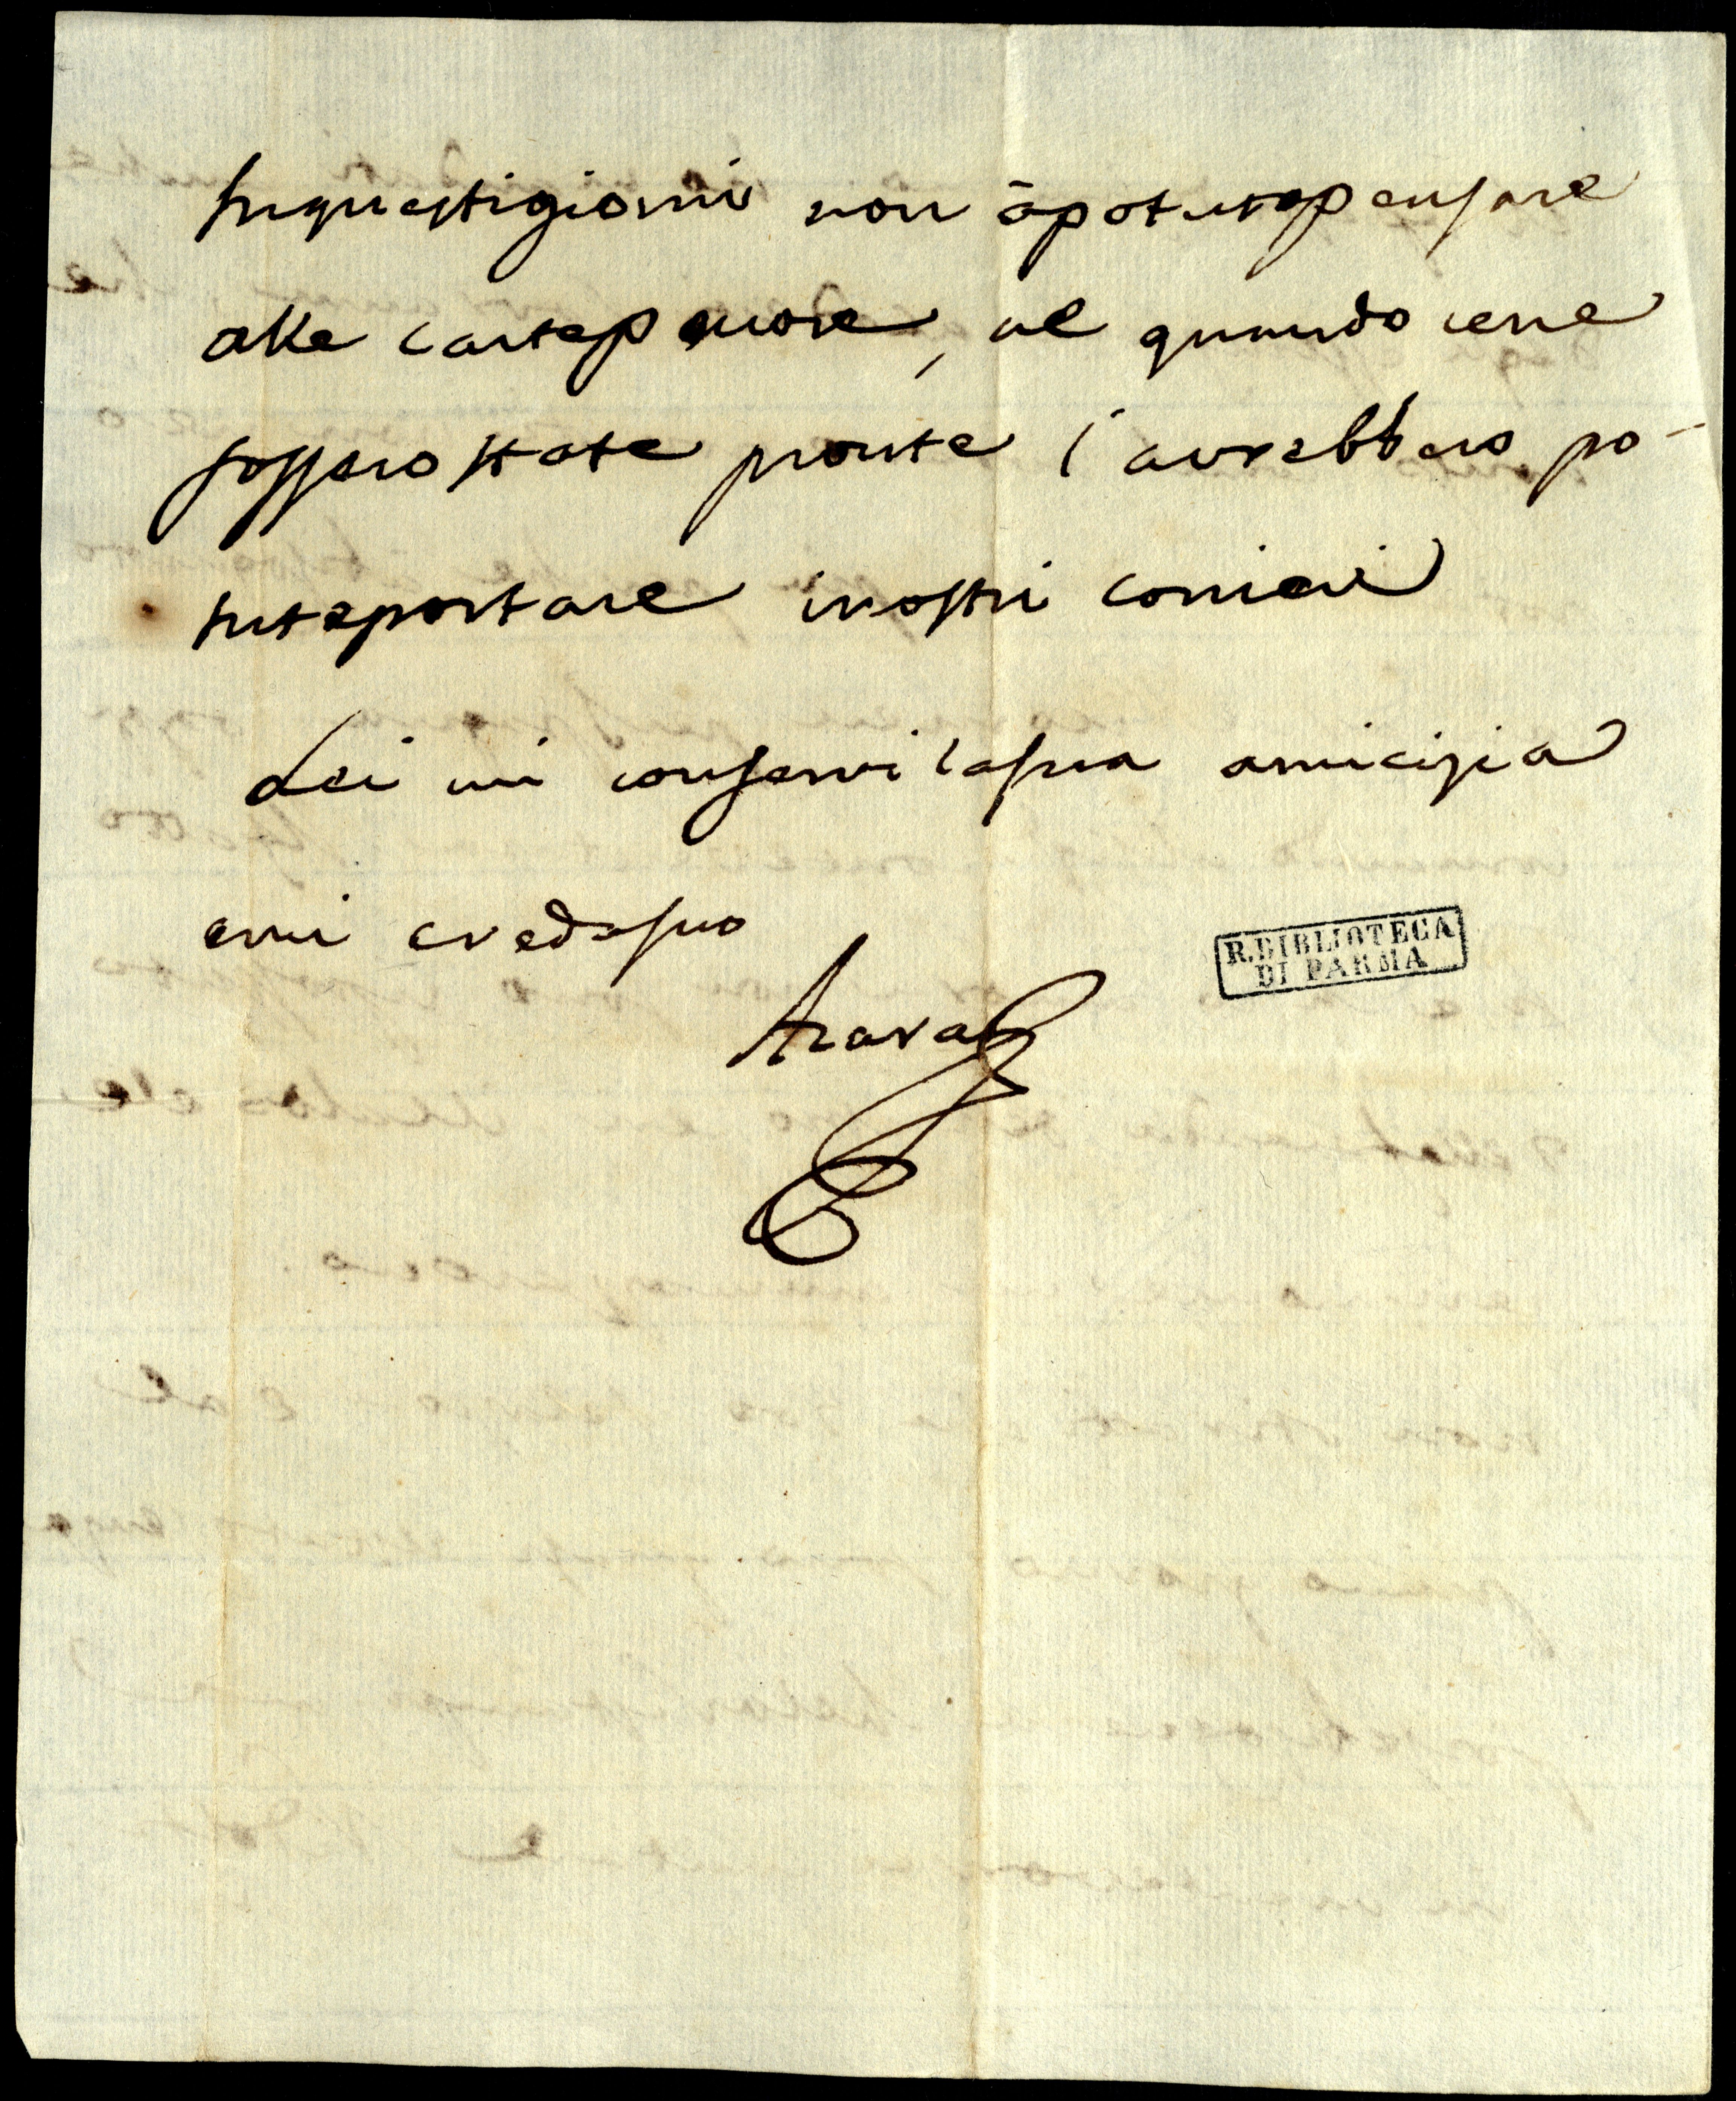 Inquestigiorni non ā potuto pensare
alle carte penore, ne quando cene
fossero state pronte l'avrebbero po-
tute portare inostri corrieri
Lei mi conservi lasua amicizia
emi creda suo
Azara
R. BIBLIOTECA
DI PARMA